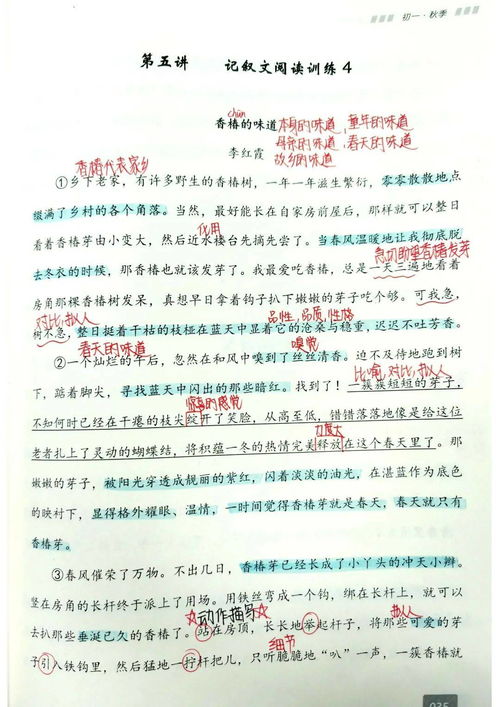 初一·秋季
第五讲 记叙文阅读训练4
chūn
香椿的味道 本身的味道、童年的味道
母亲的味道、春天的味道
李红霞 故乡的味道
香椿代表家乡
①乡下老家，有许多野生的香椿树，一年一年滋生繁衍，零零散散地点
缀满了乡村的各个角落。当然，最好能长在自家房前屋后，那样就可以整日
化用
看着香椿芽由小变大，然后近水楼台先摘先尝了。当春风温暖地让我彻底脱
急切盼望香椿发芽
去冬衣的时候，那香椿也就该发芽了。我最爱吃香椿，总是一天三遍地看着
房角那棵香椿树发呆，真想早日拿着钩子扒下嫩嫩的芽子吃个够。可我急，
对比，拟人
品性、品质，性格
树不急，整日挺着干枯的枝桠在蓝天中显着它的沧桑与稳重，迟迟不吐芳香。
春天的味道
嗅觉
②一个灿烂的午后，忽然在和风中嗅到了丝丝清香。迫不及待地跑到树
比喻，对比，拟人
下，踮着脚尖，寻找蓝天中闪出的那些暗红。找到了！一簇簇短短的芽子，
的感觉
不知何时已经在干瘪的枝尖绽开了笑脸，从高至低，错错落落地像是给这位
力度大
老者扎上了灵动的蝴蝶结，将积蕴一冬的热情完美释放在这个春天里了。那
嫩嫩的芽子，被阳光穿透成靓丽的紫红，闪着淡淡的油光，在湛蓝作为底色
的映衬下，显得格外耀眼、温情，一时间觉得香椿芽就是春天，春天就只有
香椿芽。
③春风催荣了万物。不出几日，香椿芽已经长成了小丫头的冲天小辫。
竖在房角的长杆终于派上了用场。用铁丝弯成一个钩，绑在长杆上，就可以
☆动作描写☆
拟人
去扒那些垂涎已久的香椿了。站在房顶，长长地举起杆子，将那些可爱的芽
细节
子引入铁钩里，然后猛地一拧杆把儿，只听脆脆地“叭”一声，一簇香椿就
035